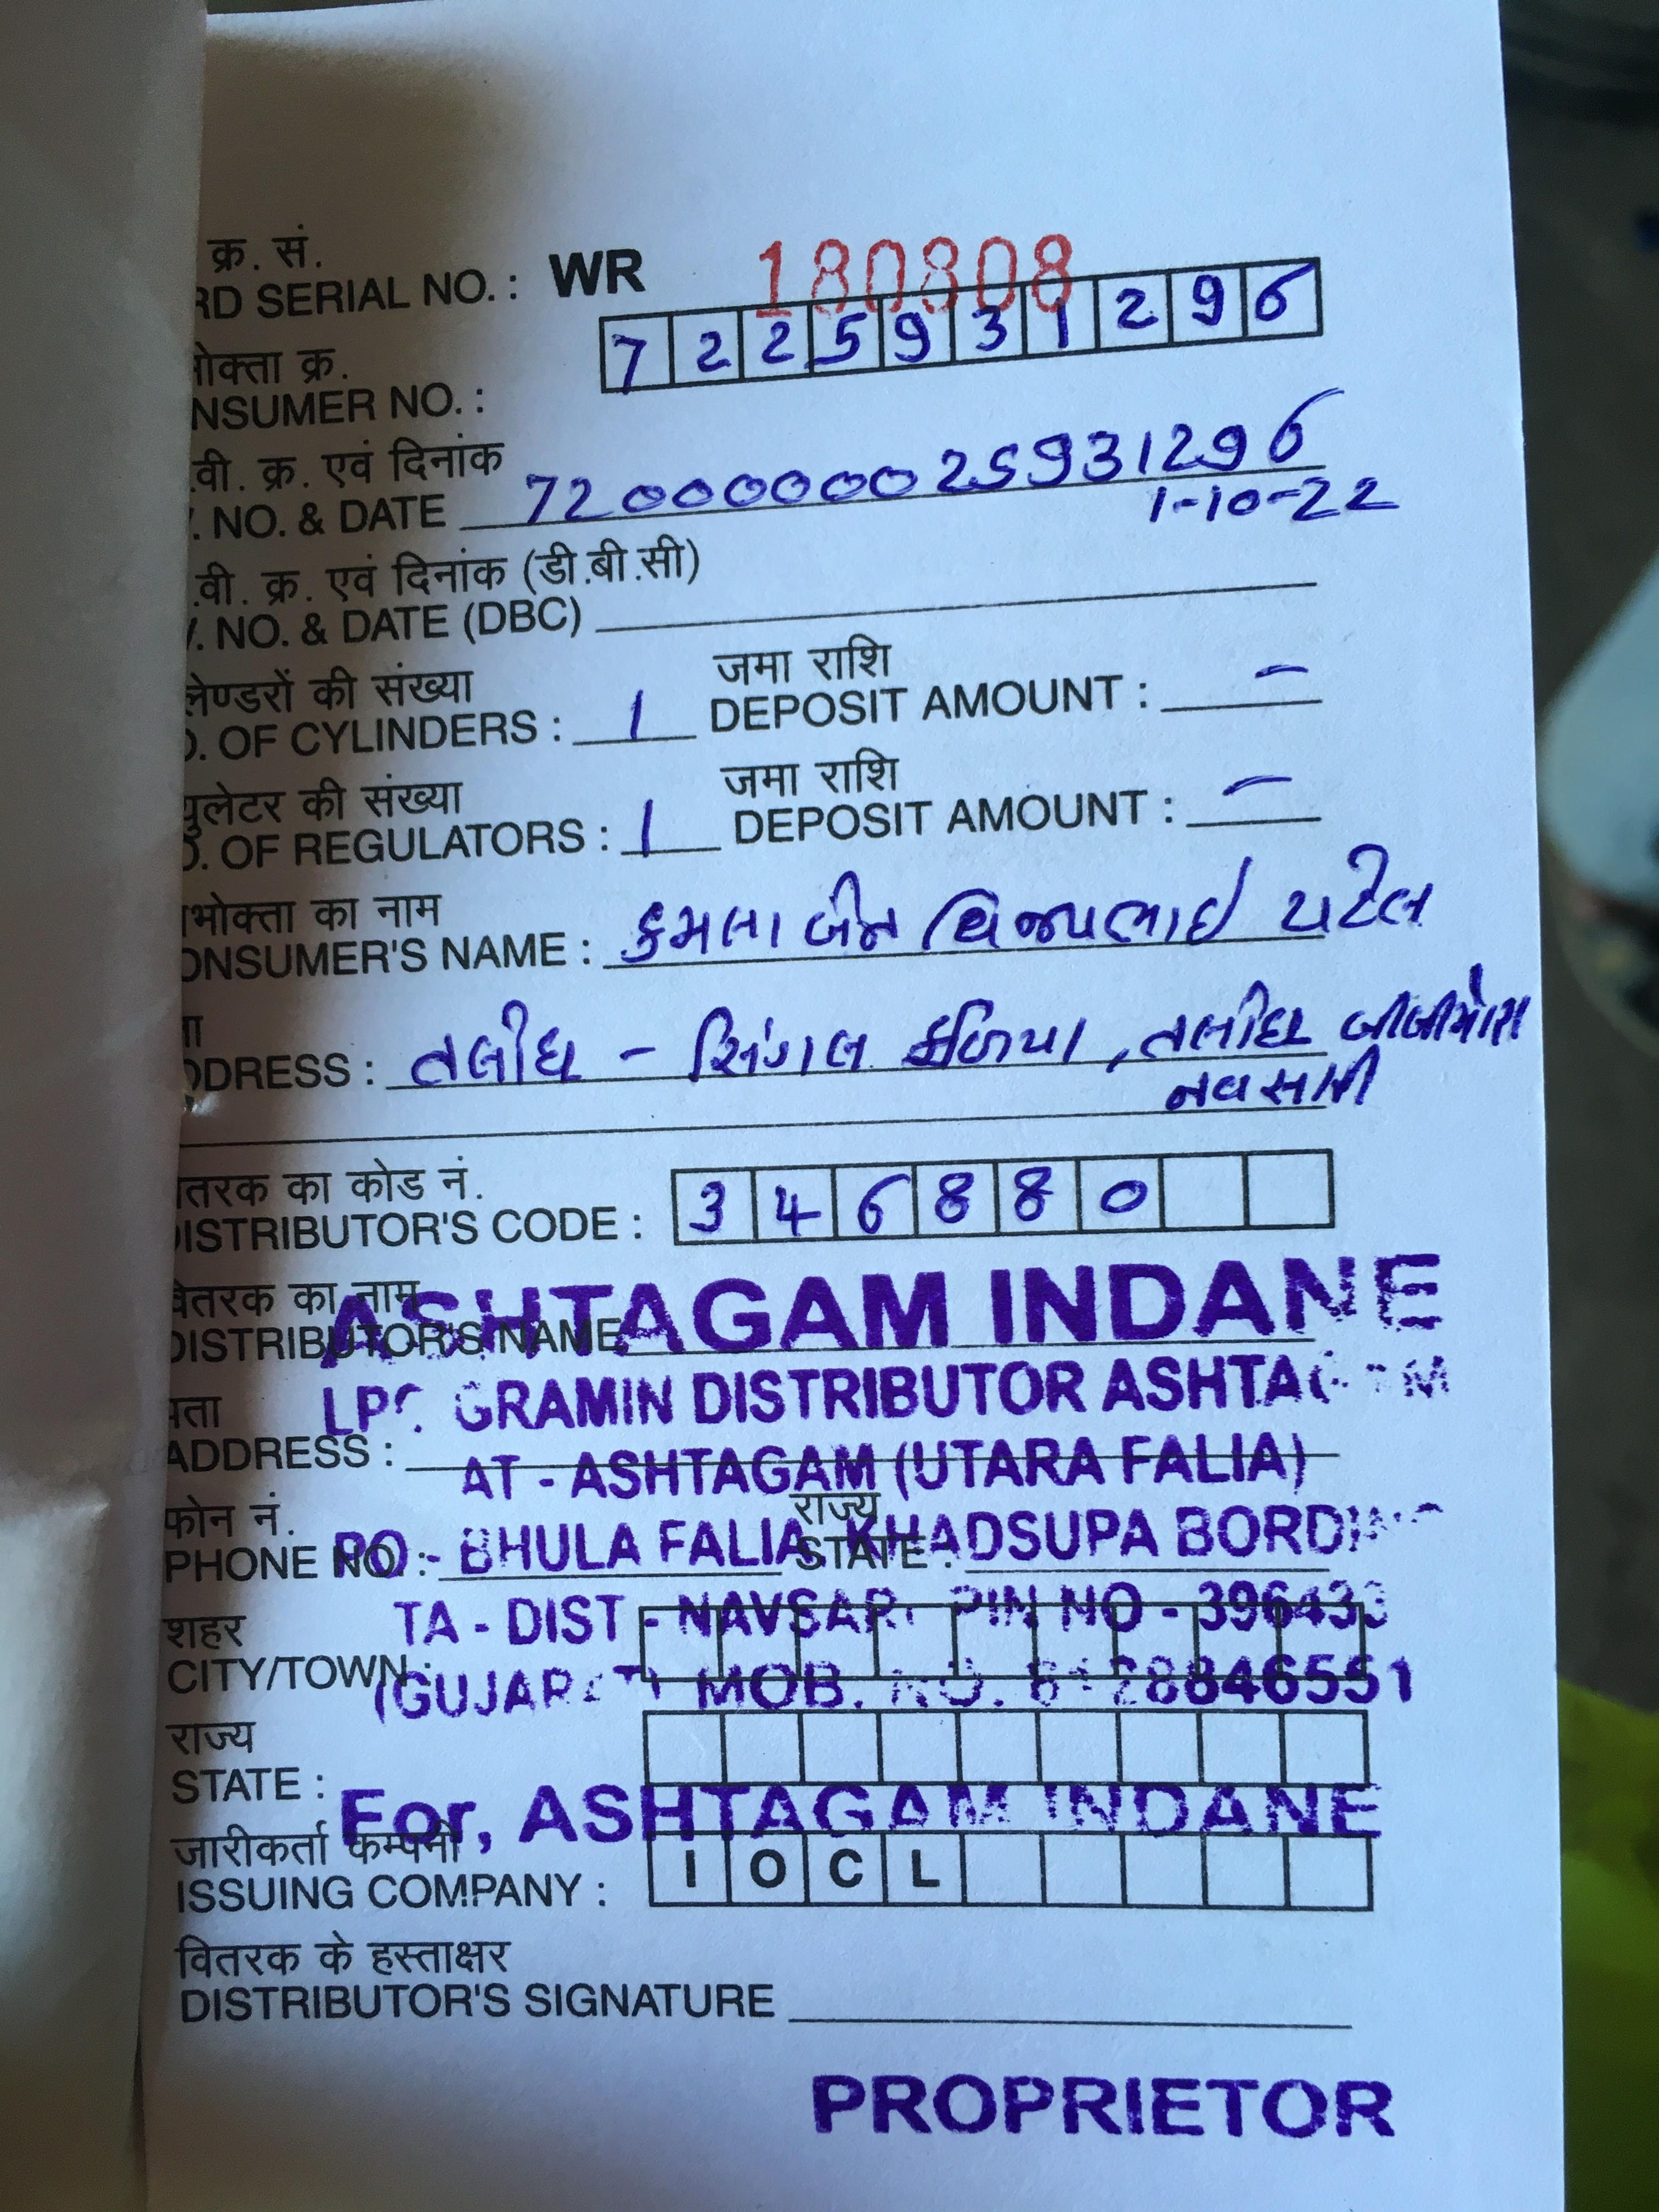 क्र. सं.
RD SERIAL NO. : WR 180808
भोक्ता क्र. 7225931296
NSUMER NO. :
वी. क्र. एवं दिनांक
NO. & DATE 72000000025931296
1-10-22
वी. क्र. एवं दिनांक (डी.बी.सी)
NO. & DATE (DBC)
लेण्डरों की संख्या जमा राशि
O. OF CYLINDERS : 1 DEPOSIT AMOUNT : –
युलेटर की संख्या जमा राशि
O. OF REGULATORS : 1 DEPOSIT AMOUNT : –
भोक्ता का नाम
ONSUMER'S NAME : કમલા બેન વિજયભાઇ પટેલ
DDRESS : તલોધ - સિંગલ ફળિયા, તલોધ બીલીમોરા
નવસારી
तरक का कोड नं.
DISTRIBUTOR'S CODE : 346880
वितरक का नाम
DISTRIBUTOR'S NAME ASHTAGAM INDANE
GRAMIN DISTRIBUTOR ASHTAGAM
पता
ADDRESS : AT - ASHTAGAM (UTARA FALIA)
फोन नं. राज्य
PHONE NO. : STATE :
PO - BHULA FALIA, KHADSUPA BORDING
TA - DIST - NAVSARI PIN NO - 396433
शहर
CITY/TOWN :
(GUJARAT) MOB. NO.
राज्य
STATE :
For, ASHTAGAM INDANE
जारीकर्ता कम्पनी
ISSUING COMPANY : IOCL
वितरक के हस्ताक्षर
DISTRIBUTOR'S SIGNATURE
PROPRIETOR